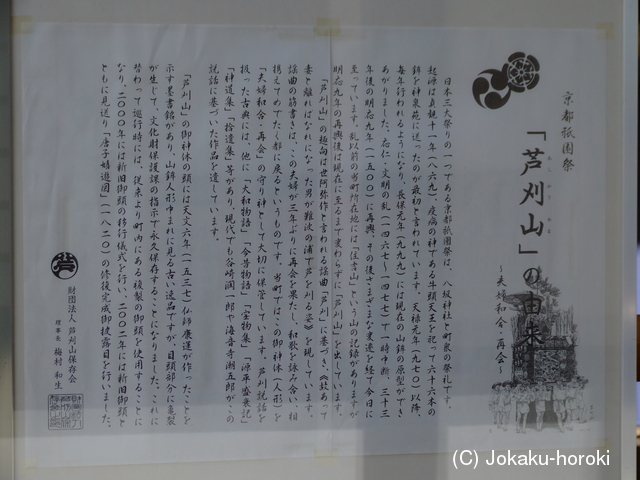 京都祇園祭
「芦刈山」の由来
～夫婦和合・再会～
日本三大祭りの一つである京都祇園祭は、八坂神社と町衆の祭礼です。
起源は貞観十一年（八六九）、疫病の神である牛頭天王を祀って六十六本の
鉾を神泉苑に送ったのが最初と言われています。天禄元年（九七〇）以降、
毎年行われるようになり、長保元年（九九九）には現在の山鉾の原型ができ
あがりました。応仁・文明の乱（一四六七～一四七七）で一時中断、三十三
年後の明応九年（一五〇〇）に再興、その後さまざまな変遷を経て今日に
至っています。乱以前の当町所在地には「住吉山」という山の記録がありますが
明応九年の再興後は現在に至るまで変わらずに「芦刈山」を出しています。
「芦刈山」の趣向は世阿弥作と言われる謡曲「芦刈」に基づき、故あって
妻と離ればなれになった男が難波の浦で芦を刈る姿》を現しています。
謡曲の筋書きでは、この夫婦が三年ぶりに再会を果たし、和歌を詠み合い相
携えてめでたく都に戻るというものです。当町ではこの御神体（人形）を
「夫婦和合・再会」の守り神として大切に保管しています。芦刈説話を
扱った古典には、他に「大和物語」「今昔物語」「宝物集」「源平盛衰記」
「神道集」「拾遺集」等があり、現代でも谷崎潤一郎や海音寺潮五郎がこの
説話に基づいた作品を遺しています。
「芦刈山」の御神体の頭には天文六年（一五三七）仏師康運が作ったことを
示す墨書銘があり、山鉾人形中まれに見る古い逸品ですが、目頭部分に亀裂
が生じて、文化財保護課の指示で永久保存することになりました。これに
替わって巡行時には、従来より町内にある複製の御頭を使用することに
なり、二〇〇〇年には新旧御頭の移行儀式を行い、二〇〇二年には新旧御頭と
ともに見送り「唐子嬉遊図」（一八二〇）の修復完成御披露目を行いました。
財団法人 芦刈山保存会
理事長 梅村和生
(C) Jokaku-horoki